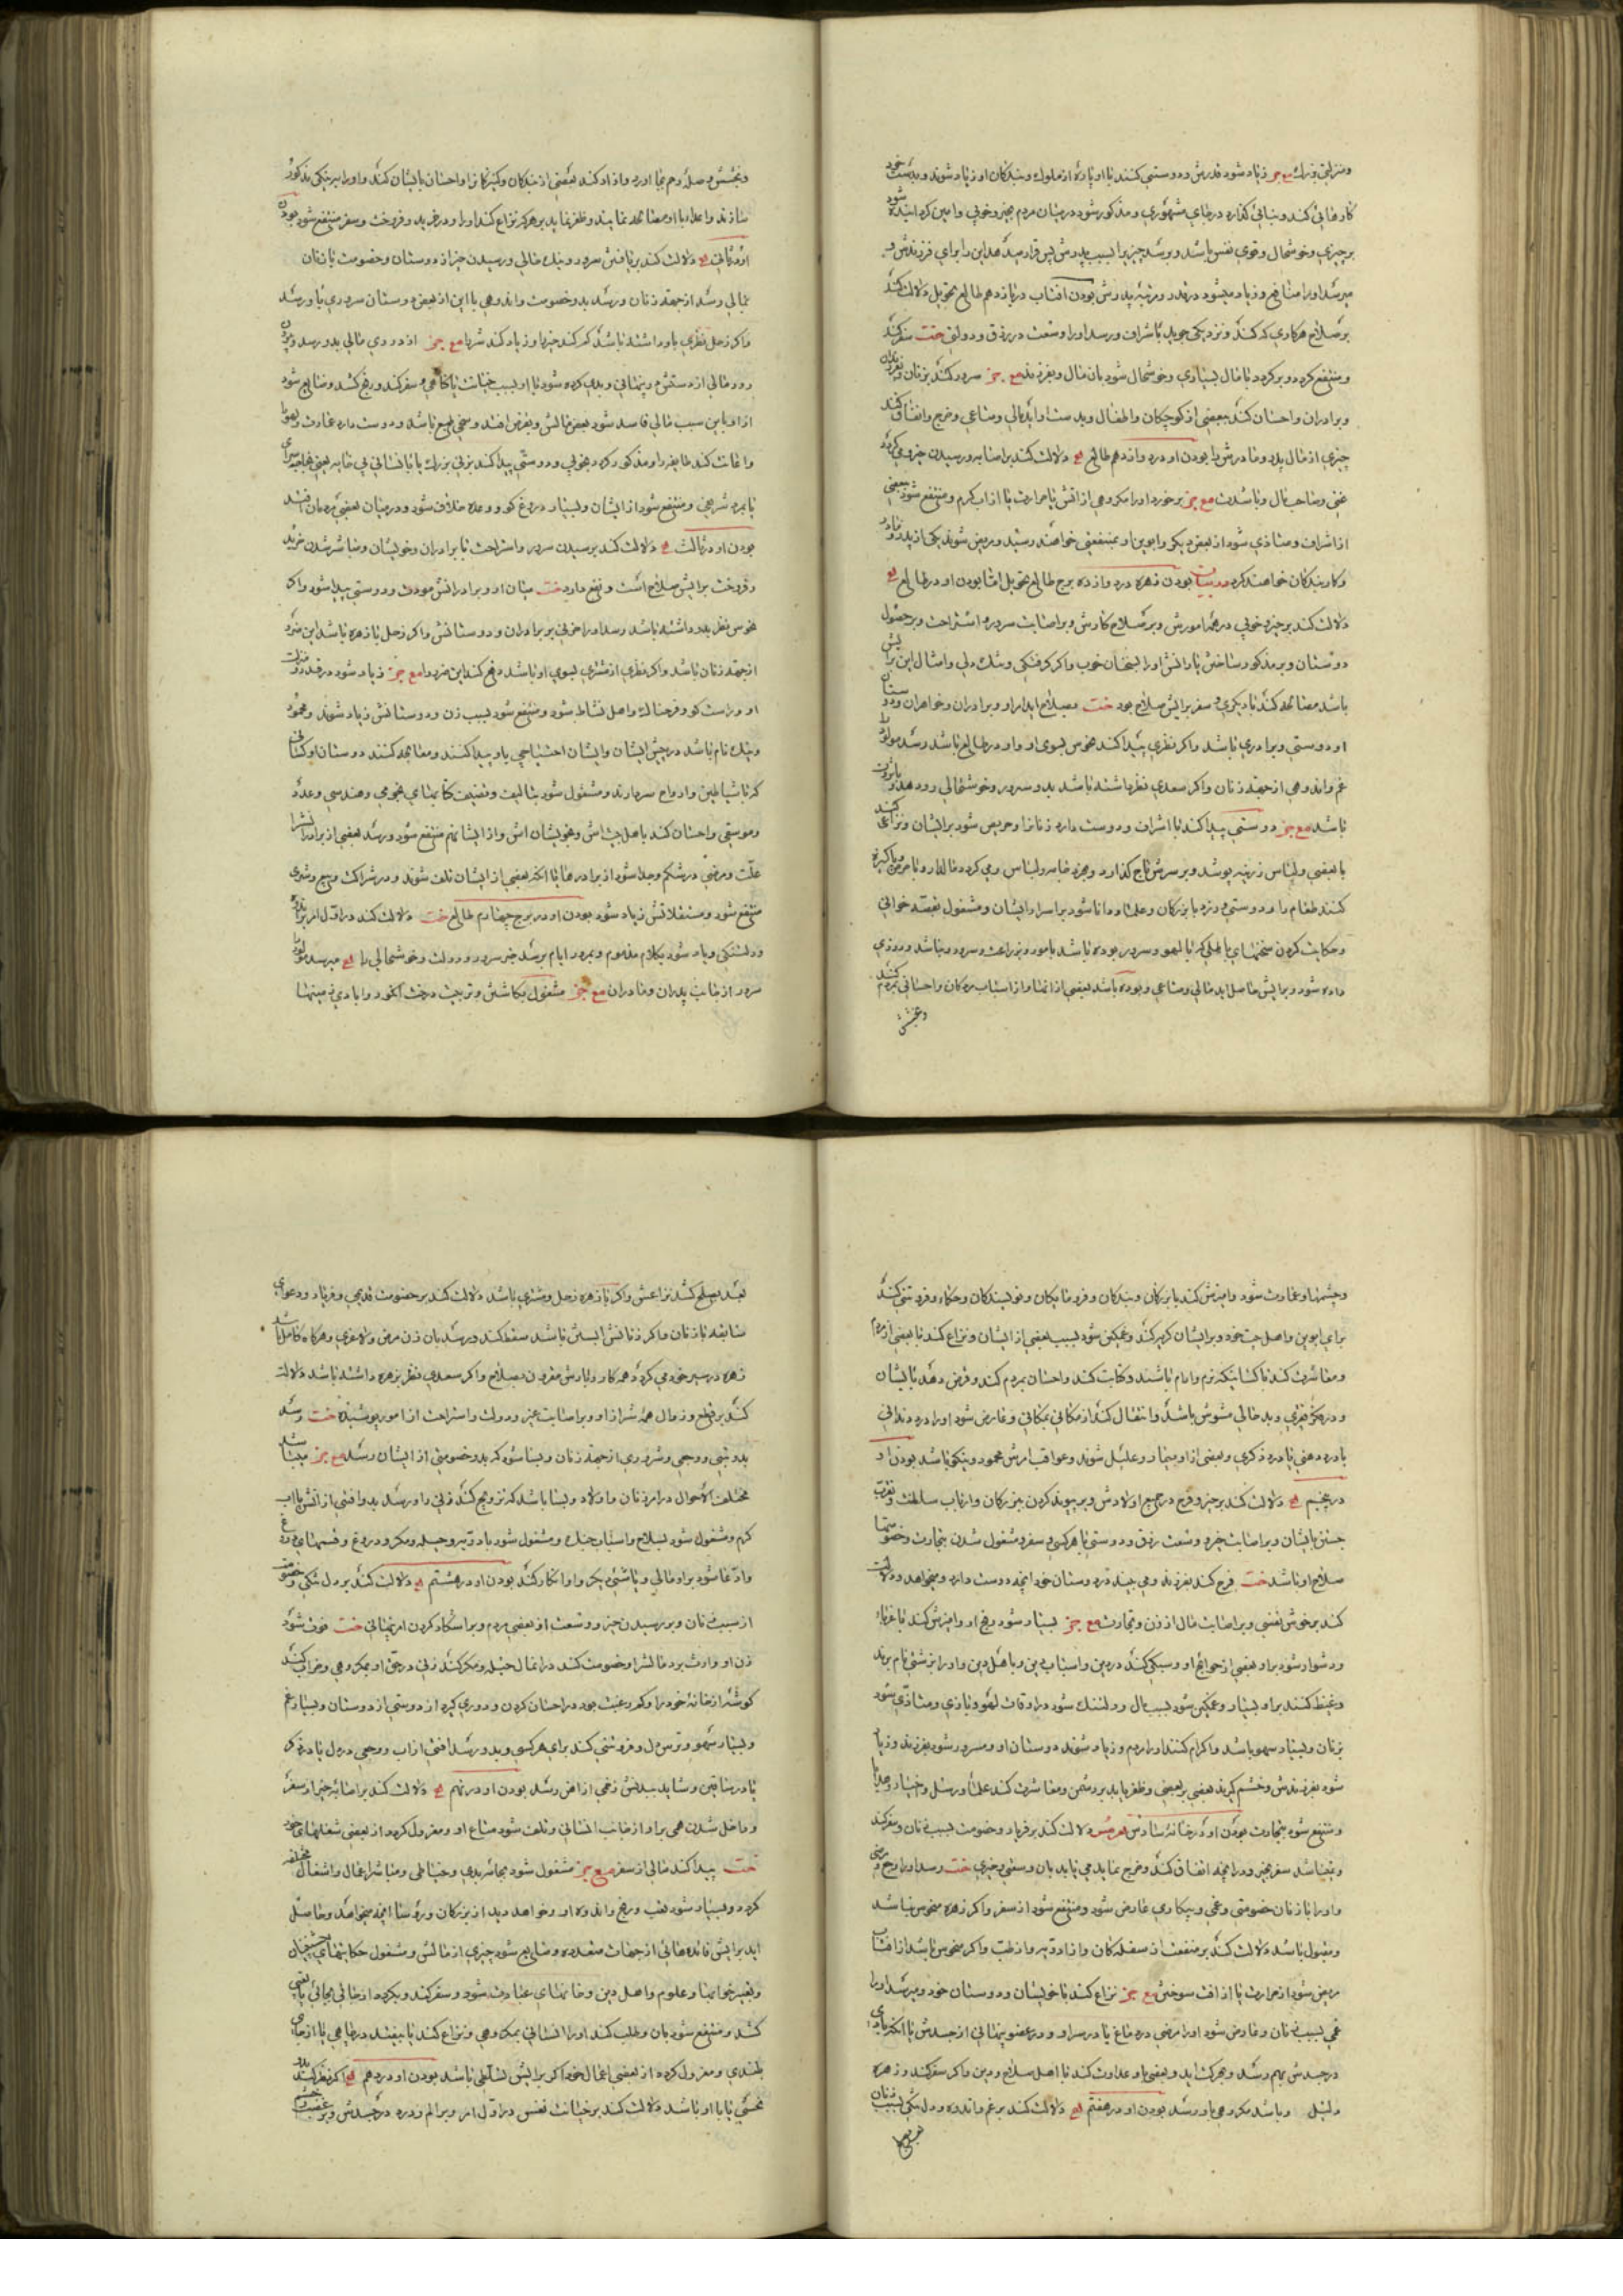 ومنزلتی بزرك مع جز زیاد شود قدرش و دوستی کنند با او پاره از ملوك و بندکان او زیاد شوند و بدست خود
کارهائی کند و بنائی کذارد در جای مشهوری و مذکور شود در میان مردم بخیر و خوبی و امین کردانیده شود
بر چیزی و خوشحال و قوی نفس باشد و برسد چیزیرا بسبب پدرش پس قرار میدهد این را برای فرزندش و
میرسد او را منافع و زیاد میشود در قدر و مرتبه پدرش بودن افتاب در یازدهم طالع تحویل دلالت کند
بر صلاح هر کاری که کند و نزدیکی جوید باشراف و رسد او را وسعت در رزق و دولتی خت سفر کند
و منتفع کردد و بر کردد با مال بسیاری و خوشحال شود بان مال و بفرزند مع جز سرور کند بزنان و بفرزندان
و برادران و احسان کند ببعضی از کوچکان و اطفال و بدست او آید مالی و متاعی و خرج و انفاق کند
چیزی از مال پدر و مادرش را بودن او در دوازدهم طالع له دلالت کند بر اصابه و رسیدن خیر و می کردد
غنی و صاحب مال و باشدت مع جز برخورد او را مکروهی از اتش یا حرارت یا از اب کرم و منتفع شود ببعضی
از اشراف و متاذی شود از بعضی دیکر و ابوین او بمنفعتی خواهند رسید و مریض شوند یکی از پدر و مادر
و کار بندکان خواهند کرد در بیان بودن زهره در دوازده برج طالع تحویل اما بودن او در طالع له
دلالت کند بر خیر و خوبی در همه امورش و بر صلاح کارش و بر اصابت سرور و استراحت و بر حصول
دوستان و بر مذکور ساختن یارانش او را بسخنان خوب و اکر کرفتکی و تنك دلی و امثال این برایش
باشد مصالحه کند با دیکری و سفر برایش صلاح بود خت بصلاح اید امر او و برادران و خواهران و دوستان
او دوستی و برادری باشد و اکر نظری پیدا کند نحوس بسوی او و او در طالع باشد رسد مولود را
غم و اندوهی از جهة زنان و اکر سعدی نظر داشته باشد بدو سرور و خوشحالی رو دهد و با یاران
باشد مع جز دوستی پیدا کند با اشراف و دوست دارد زنانرا و حریص شود برایشان و نزاعی کند
با بعضی و لباس زرینه پوشد و بر سرش تاج کذارد و بخرد جامه و لباس و می کردد مالدار و با مردمان پاکیزه
کنند طعام را و دوستی ورزد با بزرکان و علما و دانا شود بر اسرار ایشان و مشغول بقصه خوانی
و حکایت کردن سخنهای باطلی کردد یا لهو و سرور بوده باشد بامور و بزراعت و سرور و باشد و روزی
داده شود و برایش حاصل اید مالی و متاعی و بوده باشد بعضی از انها و از اسباب مردکان و احسانی بمردم کند
و بخشش
و بخشش و صله رحم بجا اورد و ازاد کند بعضی از بندکان و کنیزکانرا و احسان بایشان کند و او را بنیکی مذکور
سازند و اعدا با او مصالحه نمایند و ظفر یابد بر هر که نزاع کند او را و در خرید و فروخت و سفر منتفع شود بودن
او در ثانی له دلالت کند بر یافتش سرور و نیك حالی و رسیدن خیر از دوستان و خصومت با زنان
بمالی رسد از جهة زنان و رسد بدو خصومت و اندوهی با این از بعض دوستان سروری باو رسد
و اکر زحل نظری باو داشته باشد کم کند خیر او زیاد کند شر را مع جز از دزدی مالی بدو رسد و ببرد
دزد مالی از دستش و پنهانی و بدی کرده شود با او بسبب خیانت یا کاهی و سفر کند و رنج کشد و ضایع شود
از او باین سبب مالی فاسد شود بعض مالش و بقرض افتد و سخی طبع باشد و دوست دارد عمارت و لهو را
و اعانت کند طایفه را و مذکور کردد بخوبی و دوستی پیدا کند بزنی بزرك یا با انسانی بی خایه یعنی خواجه سرای
یا بمرد شریفی و منتفع شود از ایشان و بسیار دروغ کو و وعده خلاف شود و در میان بعضی مردمان افتد
بودن او در ثالث له دلالت کند بر رسیدن سرور و استراحت با برادران و خویشان و مباشر شدن خرید
و فروخت برایش صلاح است و نفع دارد خت میان او و برادرانش مودت و دوستی پیدا شود و اکر
نحوس نظر بدو داشته باشد رسد او را حزنی بر برادران و دوستانش و اکر زحل با زهره باشد این ضرر
از جهة زنان باشد و اکر نظری از مشتری بسوی او باشد دفع کند این ضرر را مع جز زیاد شود در قدر و منزلت
او و راست کو و فرحناك و اهل نشاط شود و منتفع شود بسبب زن و دوستانش زیاد شوند و محمود
و نیك نام باشد در پیش ایشان و ایشان احتیاجی باو پیدا کنند و معاهده کنند دوستان او کسانی
که با شیاطین و ارواح سر دارند و مشغول شود بتالیف و تصنیف کتابهای نجومی و هندسی و عدد
و موسیقی و احسان کند باهل بیت اش و خویشان اش و از ایشان هم منتفع شود و رسد بعضی از برادرانش را
علت و مرضی در شکم و جدا شود از برادرها یا انکه بعضی از ایشان تلف شوند و در شراکت و بیع و شری
منتفع شود و مستغلاتش زیاد شود بودن او در برج چهارم طالع خت دلالت کند در اول امر بر اندوه
و دلتنکی و یاد شود بکلام مذموم و بمرور ایام برسد خیر و سرور و دولت و خوشحالی را له میرسد مولود را
سرور از جانب پدران و مادران مع جز مشغول بکاشتن و تربیت درخت انکور و ابادی زمینها
و چشمها و عمارت شود و امیزش کند با بزرکان و بندکان و فرومایکان و نویسندکان و حکام و فروتنی کند
برای ابوین و اهل بیت خود و برایشان کریه کند و غمکین شود بسبب بعضی از ایشان و نزاع کند با بعضی از مردم
و معاشرت کند با کسانیکه نرم و ارام باشند و کتابت کند و احسان بمردم کند و قرض دهد بایشان
و در فکر فقری و بد حالی مشوش باشد و انتقال کند از مکانی بمکانی و عارض شود او را درد دندانی
یا درد دهنی یا درد ذکری و بعضی از او بیمار و علیل شوند و عواقب امرش محمود و نیکو باشد بودن او
در پنجم له دلالت کند بر خیر و فرح در جمیع اولادش و بر پیوند کردن ببزرکان و ارباب سلطنت و تقرب
جستن بایشان و بر اصابت خیر و وسعت رزق و دوستی با هر کسی و سفر و مشغول شدن بتجارت و خصومتها
صلاح او باشد خت فرح کند بفرزند و می بیند در دوستان خود انچه دوست دارد و میخواهد و دلالت
کند بر خوش نفسی و بر اصابت مال از زن و تجارت مع جز بسیار شود رنج او و امیزش کند با غرباء
و دشوار شود بر او بعضی از حوایج او و سبکی کند در دین و اسباب دین و باهل دین و او را بزشتی نام برند
و غیظ کنند بر او بسیار و غمکین شود بسبب مال و دلتنك شود در اوقات لهو و بازی و متاذی شود
بزنان و بسیار سهو باشد و اکرام کنند او را مردم و زیاد شوند دوستان او و مسرور شود بفرزند و زیاد
شود بفرزندش و خشم کیرند بعضی بر بعضی و ظفر یابد بر دشمن و معاشرت کند علما و رسل و اخبار و هدایا
و منتفع شود بتجارت بودن او در خانه سادس هرمس دلالت کند بر فریاد و خصومت بسبب زنان و سفر کند
و بمیناسد سفر بخیر و در انچه انفاق کند و خرج نماید می نماید بان و سعی و خیری خت رسد او را رنج و مرضی
و او را با زنان خصومتی و غمی و بیکاری عارض شود و منتفع شود از سفر و اکر زهره منحوس نباشد
و مقبول باشد دلالت کند بر منفعت از سفله کان و از ادویه و از طب و اکر منحوس باشد از افتاب
مریض شود از حرارت یا از افت سوختن مع جز نزاع کند با خویشان و دوستان خود و میرسد او را
غمی بسبب زنان و عارض شود او را مرضی در دماغ یا در سر او و در عضو پنهانی از جسدش یا انکه بادی
در جسدش بهم رسد و بحرکت اید و بعضی باو عداوت کند با اهل صلاح و دین و اکر سفر کند و زهره
دلیل و باشد مکروهی باو رسد بودن او در هفتم له دلالت کند بر غم و اندوه و دل تنکی بسبب زنان
بعد بصلح کشد نزاعش و اکر با زهره زحل و مشتری باشد دلالت کند بر خصومت قدیمی و فریاد و دعوای
سابقه با زنان و اکر زنانش ابستن باشد سقط کند و رسد بان زن مرض و لاغری و هرکاه کامل باشد
زهره در سیر خود می کردد همه کار و بارش مقرون بصلاح و اکر سعدی نظر بزهره داشته باشد دلالت
کند بر قطع و زوال همه شر از او و بر اصابت خیر و دولت و استراحت از امور پوشیده خت رسد
بدو تبی و وجعی و شروری از جهة زنان و بسا شود که بدو خصومتی از ایشان رسد مع جز میباشد
مختلف الاحوال در امر زنان و اولاد و بسا باشد که تزویج کند زنی را و رسد بدو افتی از اتش یا اب
کرم و مشغول شود بسلاح و اسباب جنك و مشغول شود بادویه و حیله و مکر و دروغ و قسمهای دروغ
و ادعا شود بر او مالی و یا شئ دیکر و او انکار کند بودن او در هشتم له دلالت کند بر دل تنکی و خصومت
از سبب زنان و بر رسیدن خیر و وسعت از بعضی مردم و بر اشکار کردن امر پنهانی خت فوت شود
زن او و وارث برد مالشرا و خصومت کند در انمال حیله و مکر کند زنی در حق او بمکروهی و خراب کند
کوشه از خانه خود را و کم رغبت بود در احسان کردن و دوری کیرد از دوستی از دوستان و بسیار غم
و بسیار سهو و ترس دل و فروتنی کند برای هر کسی و بدو رسد افتی از اب و وجعی در دل یا در ذکر
یا در ساقین و شاید ببدنش زخمی از اهن رسد بودن او در نهم له دلالت کند بر اصابه خیر از سفر
و داخل شدن همی بر او از جانب انسانی و تلف شود متاع او و معزول کردد از بعضی شغلهای خود
خت پیدا کند مالی از سفر مع جز مشغول شود بجامه بدی و خیاطی و مباشر اعمال و اشغال مختلفه
کردد و بسیار شود تعب و رنج و اندوه او و خواهد دید از بزرکان و رؤسا انچه میخواهد و حاصل
اید برایش فائده هائی از جهات متعدده و ضایع شود چیزی از مالش و مشغول حکایتهای پیشینیان
و تعبیر خوابها و علوم و اهل دین و خانهای عبادت شود و سفر کند و بکردد از جائی بجائی یا تعبی
کشد و منتفع شود بان و طلب کند او را انسانی بمکروهی و نزاع کند یا بیفتد در چاهی یا از جای
بلندی و معزول کردد از بعضی اعمال خود اکر برایش تسلطی باشد بودن او در دهم له اکر نظر کند بدو
نحسی یا با او باشد دلالت کند بر خیانت نفس در اول امر و بر الم و درد در جسدش و بر غضب و خشم